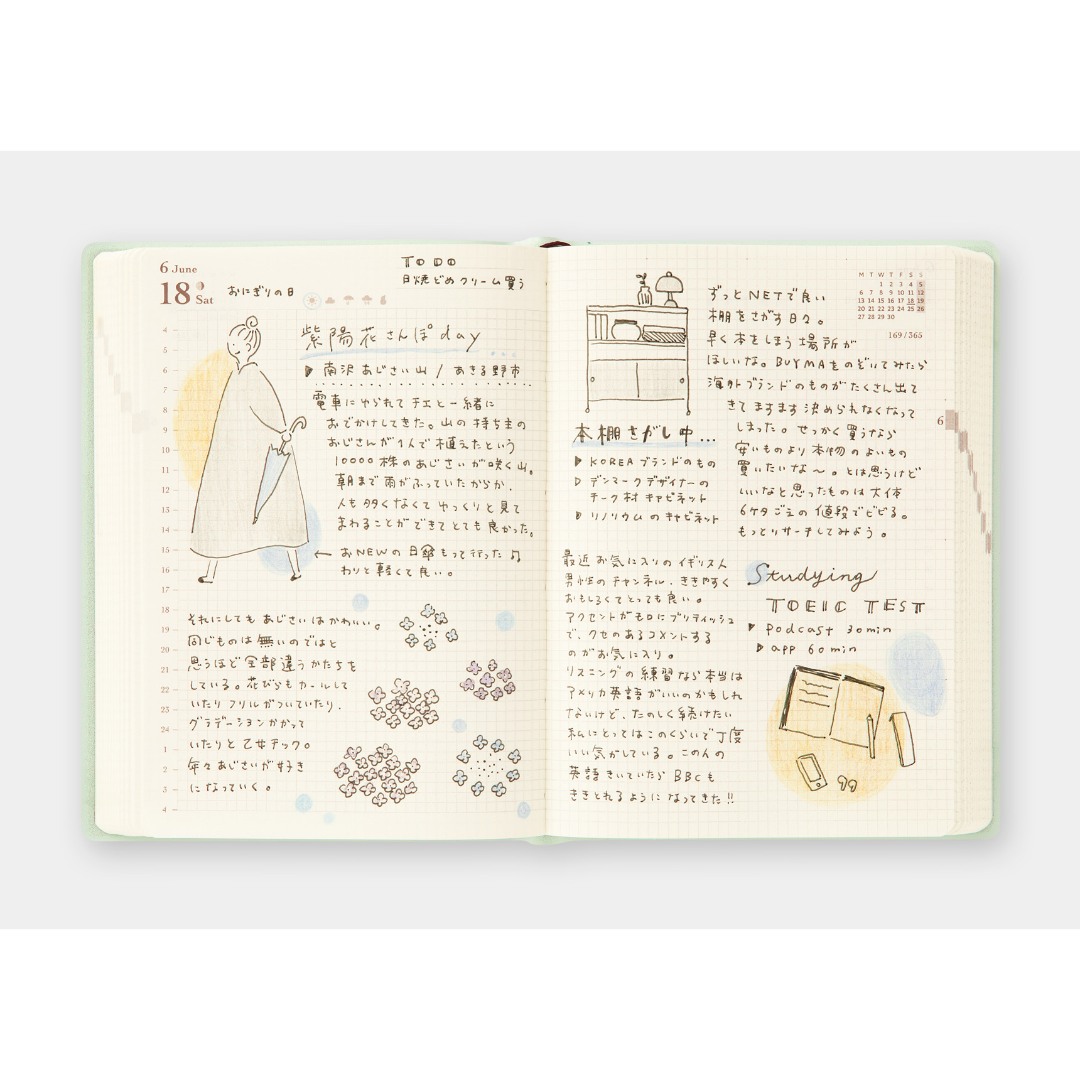 6 June
18 Sat
おにぎりの日
TO DO
日焼どめクリーム買う
紫陽花さんぽday
南沢あじさい山 / あきる野市
電車にゆられてチエと一緒に
おでかけしてきた。山の持ち主の
おじさんが1人で植えたという
10000株のあじさいが咲く山。
朝まで雨がふっていたからか、
人も多くなくてゆっくりと見て
まわることができてとても良かった。
← おNEWの日傘もって行った♫
わりと軽くて良い。
それにしてもあじさいはかわいい。
同じものは無いのではと
思うほど全部違うかたちを
している。花びらもカールして
いたりフリルがついていたり、
グラデーションかかって
いたりと乙女チック。
年々あじさいが好き
になっていく。
4
5
6
7
8
9
10
11
12
13
14
15
16
17
18
19
20
21
22
23
24
1
2
3
4
ずっとNETで良い
棚をさがす日々。
早く本をしまう場所が
ほしいな。BUYMAをのぞいてみたら
海外ブランドのものがたくさん出て
きてますます決められなくなって
しまった。せっかく買うなら
安いものより本物のよいもの
買いたいな〜。とは思うけど
いいなと思ったものは大体
6ケタごえの値段でビビる。
もっとリサーチしてみよう。
M T W T F S S
1 2 3 4 5
6 7 8 9 10 11 12
13 14 15 16 17 18 19
20 21 22 23 24 25 26
27 28 29 30
169/365
6
本棚さがし中...
KOREAブランドのもの
デンマークデザイナーの
チーク材キャビネット
リノリウムのキャビネット
最近お気に入りのイギリス人
男性のチャンネル、ききやすく
おもしろくてとっても良い。
アクセントがもロにブリティッシュ
で、クセのあるコメントする
のがお気に入り。
リスニングの練習なら本当は
アメリカ英語がいいのかもしれ
ないけど、たのしく続けたい
私にとってはこのくらいで丁度
いい気がしている。この人の
英語きいていたらBBCも
ききとれるようになってきた!!
Studying
TOEIC TEST
podcast 30min
app 60min